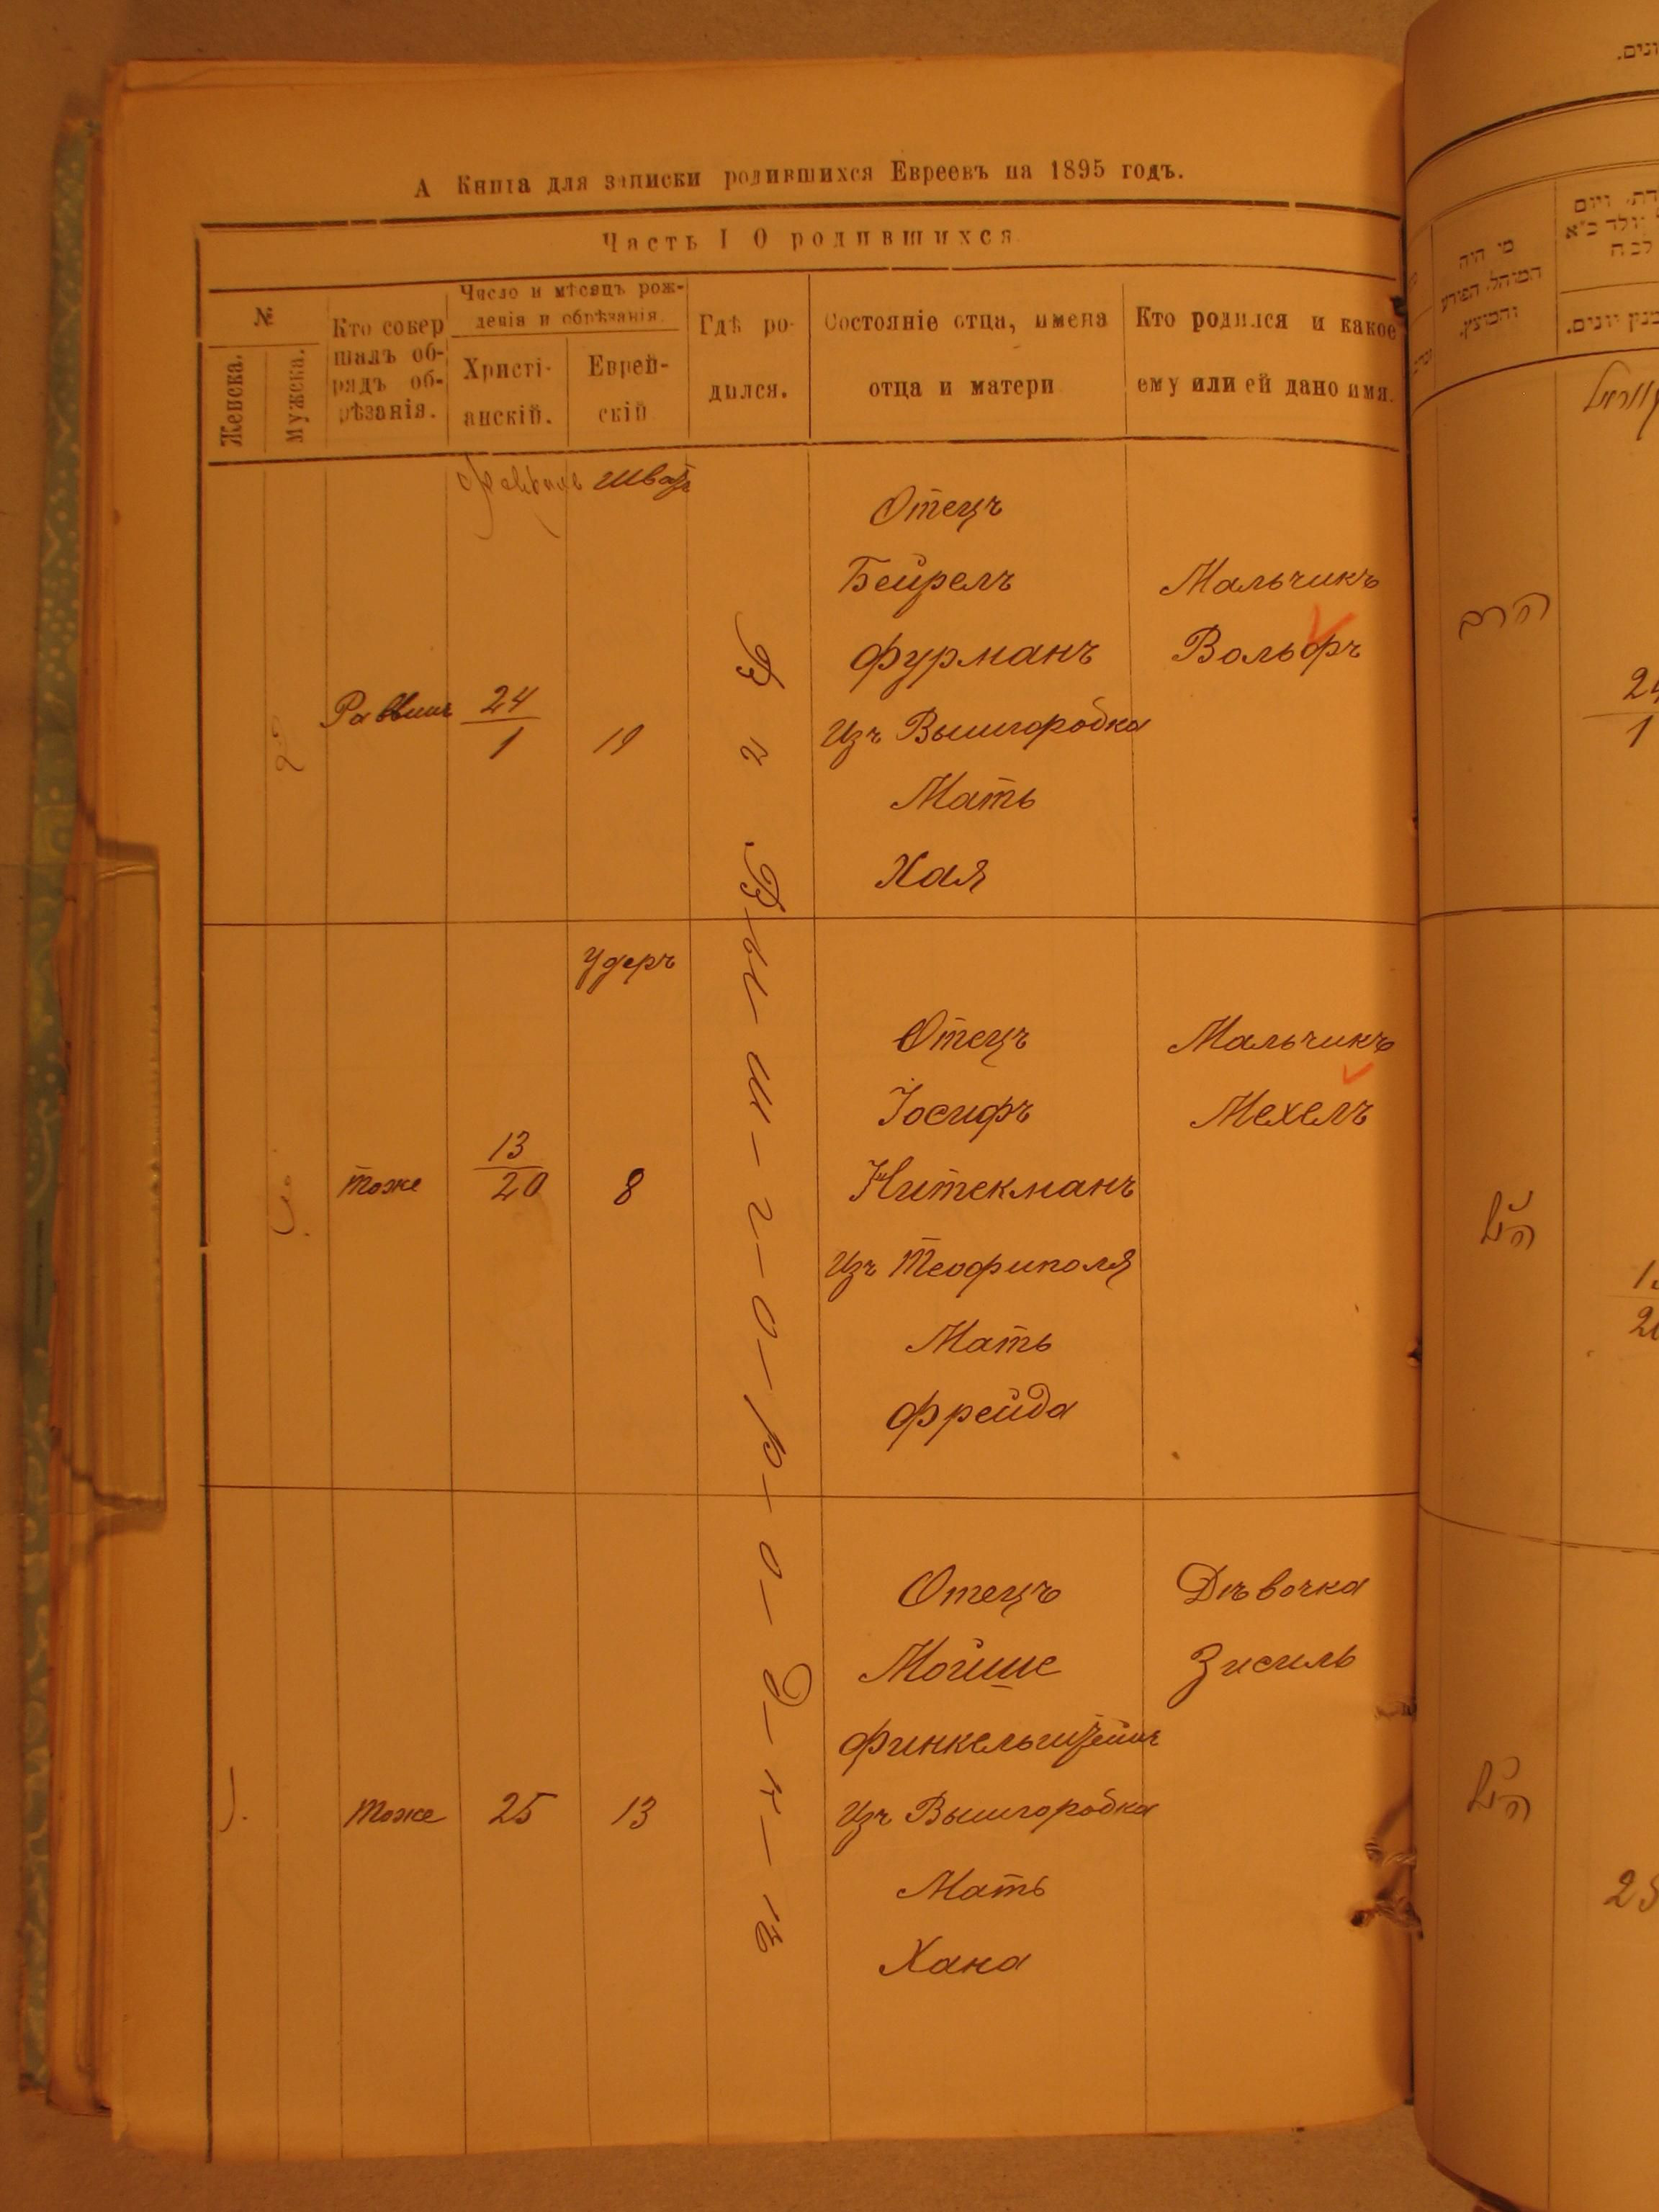 А Книга для записки родившихся Евреевъ на 1895 годъ.
Часть I О родившихся
№
Женска.
Мужска.
Кто совер
шалъ об-
рядъ об-
рѣзанія.
Число и мѣсяцъ рож-
денія и обрѣзанія
Христі-
анскій.
Еврей-
скій
Гдѣ ро-
дился.
Состояніе отца, имена
отца и матери
Кто родился и какое
ему или ей дано имя.
Шватъ
Раввинъ
24
1
19
В г Вы-ш-г-о-р-о-д-к-ѣ
Отецъ
Бейрелъ
Фурманъ
Изъ Вышгородка
Мать
Хая
Мальчикъ
Вольфъ
Удеръ
тоже
13
20
8
Отецъ
Іосифъ
Изъ Теофиполя
Мать
Фрейда
Мальчикъ
Мехелъ
тоже
25
13
Отецъ
Мойше
Финкельштейнъ
Изъ Вышгородка
Мать
Хана
Дѣвочка
Зисиль
מי היה
המוהל, הפורע
והמוצץ.
הרב
הנ"ל
הנ"ל